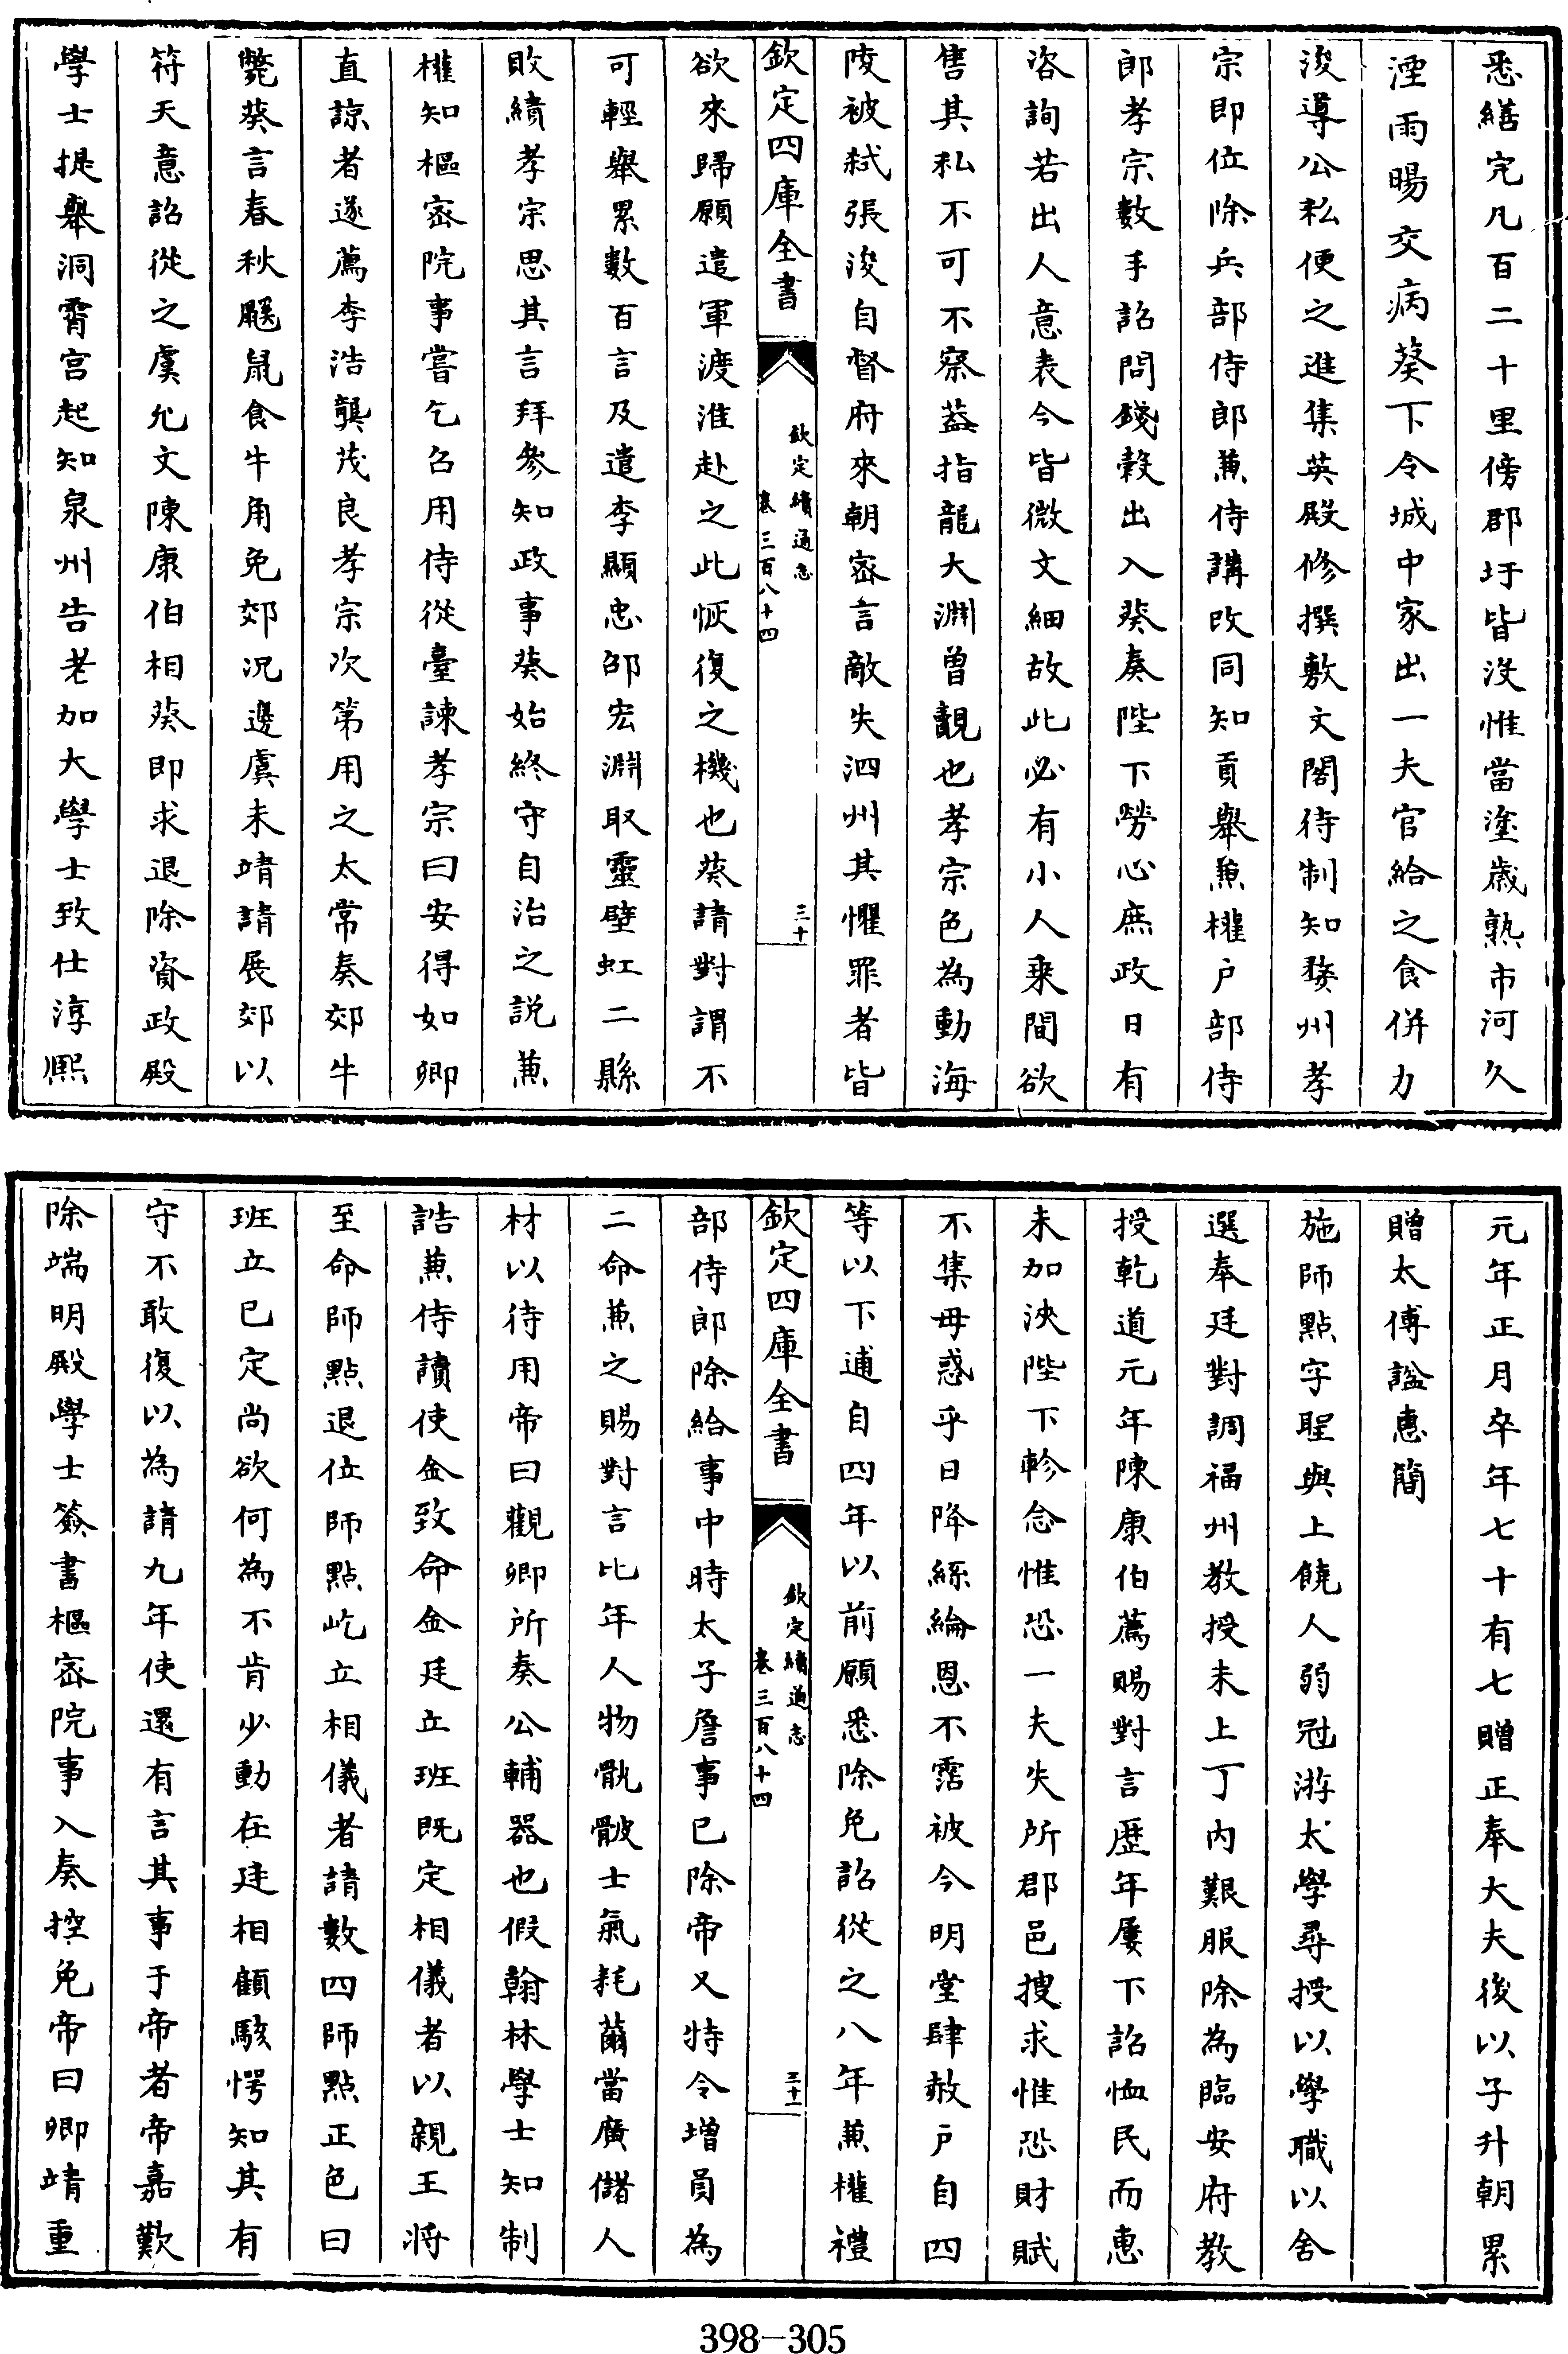 悉繕完凡百二十里傍郡圩皆沒惟當塗歲熟市河久
湮雨暘交病葵下令城中家出一夫官給之食併力
浚導公私便之進集英殿修撰敷文閣待制知婺州孝
宗即位除兵部侍郎兼侍講改同知貢舉兼權户部侍
郎孝宗數手詔問錢穀出入葵奏陛下勞心庶政日有
咨詢若出人意表今皆微文細故此必有小人乗間欲
售其私不可不察葢指龍大淵曾覿也孝宗色為動海
陵被弒張浚自督府來朝宻言敵失泗州其懼罪者皆
欽定四庫全書
欽定續通志
卷三百八十四
三十
欲來歸願遣軍渡淮赴之此恢復之機也葵請對謂不
可輕舉累數百言及遣李顯忠邵宏淵取靈壁虹二縣
敗績孝宗思其言拜參知政事葵始終守自治之説兼
權知樞宻院事嘗乞召用侍從臺諫孝宗曰安得如卿
直諒者遂薦李浩龔茂良孝宗次第用之太常奏郊牛
斃葵言春秋鼷鼠食牛角免郊況邊虞未靖請展郊以
符天意詔從之虞允文陳康伯相葵即求退除資政殿
學士提舉洞霄宫起知泉州告老加大學士致仕淳熙
元年正月卒年七十有七贈正奉大夫後以子升朝累
贈太傅諡惠簡
施師點字聖與上饒人弱冠游太學尋授以學職以舍
選奉廷對調福州教授未上丁内艱服除為臨安府教
授乾道元年陳康伯薦賜對言歷年屢下詔恤民而惠
未加泱陛下軫念惟恐一夫失所郡邑搜求惟恐財賦
不集毋惑乎日降絲綸恩不霑被今明堂肆赦户自四
等以下逋自四年以前願悉除免詔從之八年兼權禮
欽定四庫全書
欽定續通志
卷三百八十四
三十一
部侍郎除給事中時太子詹事已除帝又特令增員為
二命兼之賜對言比年人物骩骳士氣耗薾當廣儲人
材以待用帝曰觀卿所奏公輔器也假翰林學士知制
誥兼侍讀使金致命金廷立班既定相儀者以親王將
至命師點退位師點屹立相儀者請數四師點正色曰
班立已定尚欲何為不肯少動在廷相顧駭愕知其有
守不敢復以為請九年使還有言其事于帝者帝嘉歎
除端明殿學士簽書樞宻院事入奏控免帝曰卿靖重
398-305